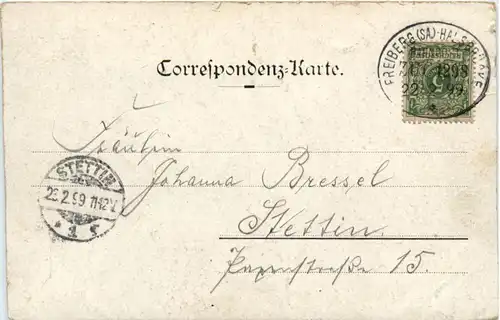 FREIBERG (SA)-HALSBRÜCKE
1298
22 99
Correspondenz-Karte.
Fräulein
Johanna Bressel
STETTIN
23.2.99 11-12V
* 1 r
Stettin
15.